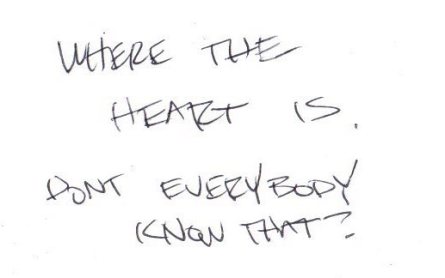 WHERE THE
HEART IS.
DONT EVERYBODY
KNOW THAT?